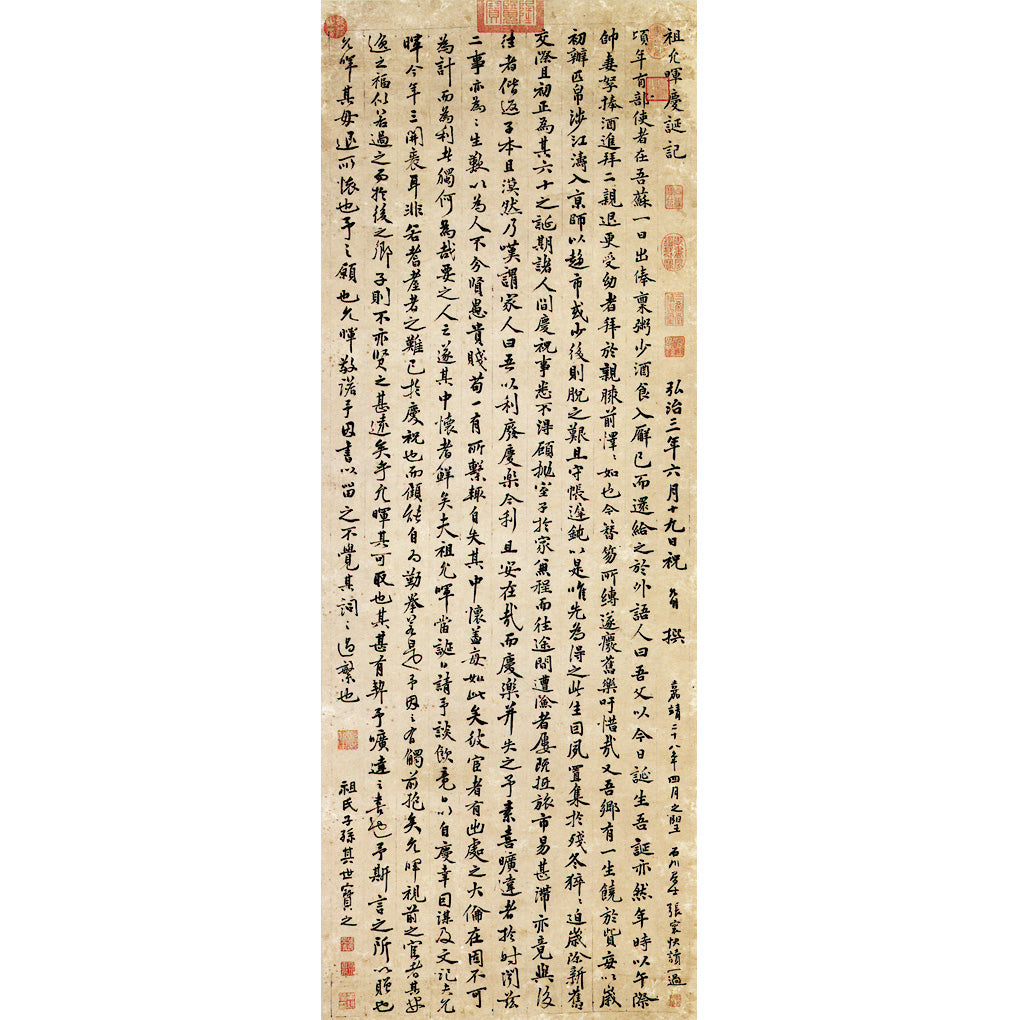 祖允暉慶誕記
弘治三年六月十九日祝允明撰
嘉靖二十八年四月之望 石川 張寰快讀一過
頃年有部使者在吾蘇一日出俸稟粥少酒食入廨已而還給之於外語人曰吾父以今日誕生吾誕亦然年時以午際
帥妻孥捧酒進拜二親退更受幼者拜於親膝前懌懌如也今替笏所縛遂癈舊樂吁惜哉又吾鄉有一生饒於貲每以歲
初辦匹帛涉江濤入京師以趨市或少後則脫之艱且守帳遲鈍以是唯先為得之此生因夙置集於殘冬猝猝迫歲除新舊
交際且初正為其六十之誕期諸人間慶祝事悉不得顧拋室子於家兼程而往途間遭澮者屢既抵旅市易甚滯亦竟與後
往者偕返子本且漠然乃嘆謂家人曰吾以利廢慶樂今利且安在哉而慶樂并失之予素喜曠達者於時閔茲
二事亦為之生歎以為人不分賢愚貴賤苟一有所繫輒自失其中懷蓋每如此矣彼宦者有出處之大倫在固不可
為計而為利者獨何為哉要之人之遂其中懷者鮮矣夫祖允暉當誕日請予談飲竟日以自慶幸因謀及文記夫允
暉今年三開袠耳非若耆耋者之難已於慶祝也而顧能自為勤拳若是予因之有觸前抱矣允暉視前之宦者其安
逸之福似若過之而於後之鄉子則不亦賢之甚遠矣乎允暉其可取也其甚有契予曠達之素也予斯言之所以贈也
允暉其毋退所懷也予之願也允暉敬諾予因書以留之不覺其詞之過繁也
祖氏子孫其世寶之